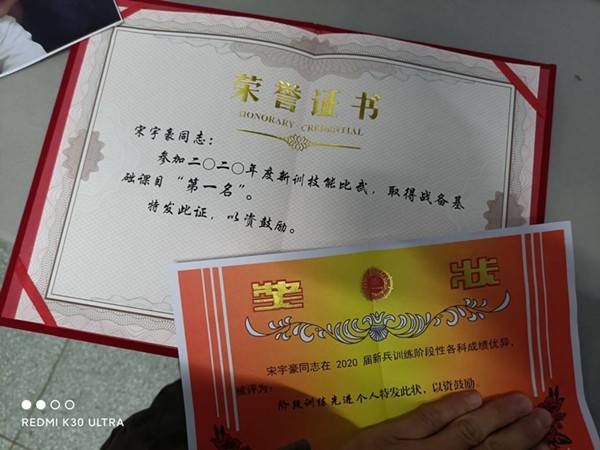 荣誉证书
HONORARY CREDENTIAL
宋宇豪同志：
参加二〇二〇年度新训技能比武，取得战备基
础课目“第一名”。
特发此证，以资鼓励。
奖状
宋宇豪同志在 2020 届新兵训练阶段性各科成绩优异，
被评为：
阶段训练先进个人特发此状，以资鼓励。
REDMI K30 ULTRA